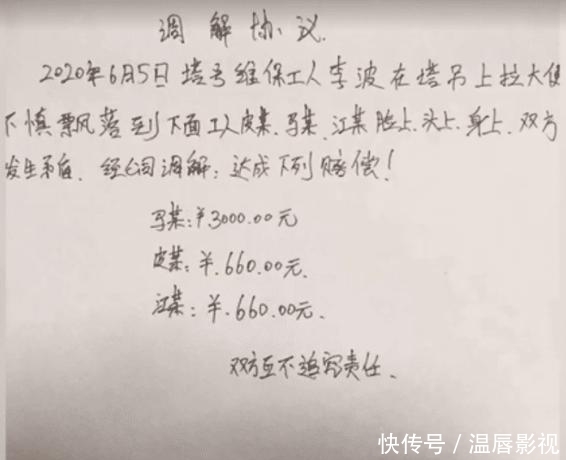 调解协议
2020年6月5日塔吊维保工人李波在塔吊上拉大便
不慎飘落到下面工人皮某、马某、江某脸上、头上、身上、双方
发生矛盾、经公司调解：达成下列赔偿！
马某：¥.3000.00元
皮某：¥.660.00元.
江某：¥.660.00元.
双方互不追究责任.
快传号／温唇影视